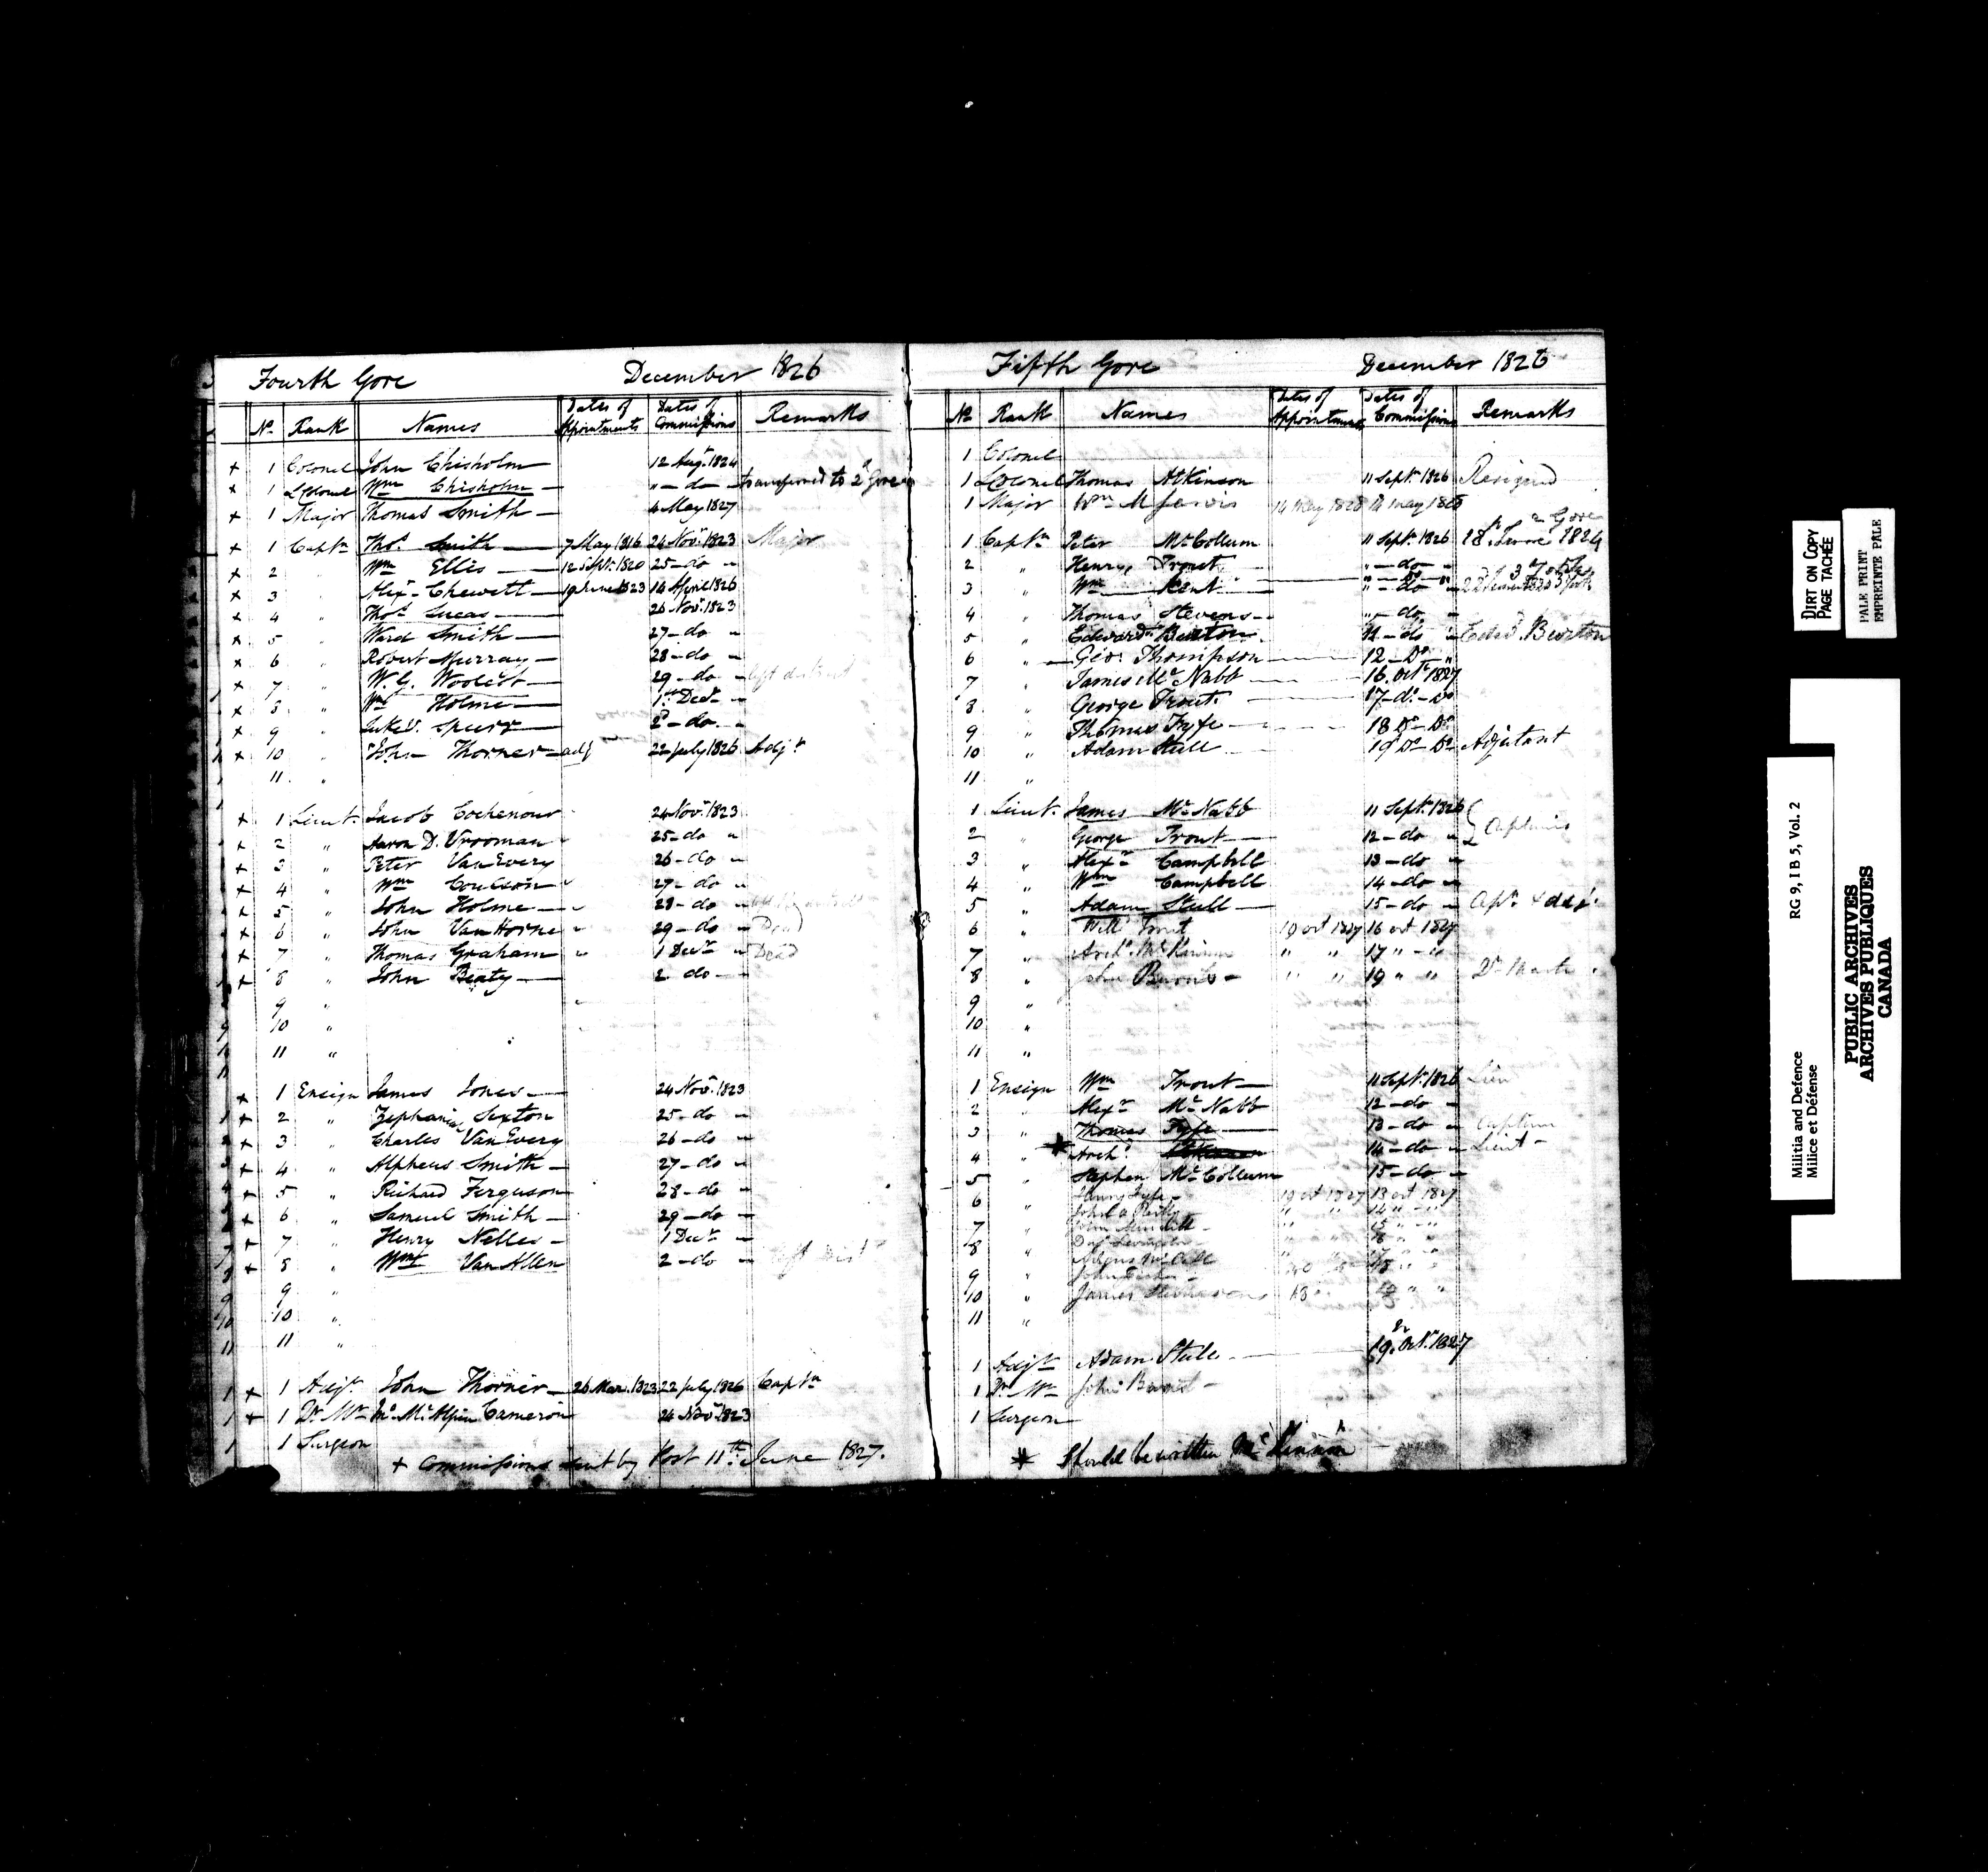 Fourth Gore December 1826
No. Rank Names Dates of Appointments Dates of Commissions Remarks
+ 1 Colonel John Chisholm 12 Augt. 1824
+ 1 LColonel Wm Chisholm " - do - transferred to 2d Gore
+ 1 Major Thomas Smith 4 May 1827
+ 1 Captn Thos. Smith 7 May 1816 24 Novr. 1823 Major
+ 2 " Wm Ellis 12 Septr. 1820 25 - do "
+ 3 " Alexr. Chewett 19 June 1823 14 April 1826
+ 4 " Thos. Lucas 26 Novr. 1823
+ 5 " Ward Smith 27 - do "
+ 6 " Robert Murray 28 - do "
+ 7 " W. G. 29 - do " left district
+ 8 " Wm Holme 1st Decr "
+ 9 " Luke V. Spurr 2d - do
+ 10 " John Thorner adjt 22 July 1826 Adjt
11 "
+ 1 Lieut. Jacob Cochenour 24 Novr. 1823
+ 2 " Aaron D. Vrooman 25 - do "
+ 3 " Peter VanEvery 26 - do "
+ 4 " Wm Coulson 27 - do "
+ 5 " John Holme 28 - do "
+ 6 " John VanHorne 29 - do " Dead
+ 7 " Thomas Graham 1 Decr " Dead
+ 8 " John Beaty 2 do
9 "
10 "
11 "
+ 1 Ensign James Jones 24 Novr. 1823
+ 2 " Zephania Sexton 25 - do "
+ 3 " Charles VanEvery 26 - do "
+ 4 " Alpheus Smith 27 - do "
+ 5 " Richard Ferguson 28 - do "
+ 6 " Samuel Smith 29 - do "
+ 7 " Henry Nelles 1 Decr "
+ 8 " Wm VanAllen 2 - do " left Dist
9 "
10 "
11 "
1 + 1 Adjt. John Thorner 26 Mar. 1823 22 July 1826 Captn
1 + 1 Qr. Mr. McAlpin Cameron 24 Novr. 1823
1 1 Surgeon
+ Commissions sent by Post 11th. June 1827.
Fifth Gore December 1826
No. Rank Names Dates of Appointments Dates of Commissions Remarks
1 Colonel
1 LColonel Thomas Atkinson 11 Septr. 1826 Resigned
1 Major Wm M Jarvis 14 May 1828 14 may 1828
1 Captn Peter McCollum 11 Septr. 1826
2 " Henry Trout " - do "
3 " Wm Kent " - do "
4 " Thomas Stevens " - do
5 " Edward Burton 11 - do " Edwd. Burton
6 " Geo: Thompson 12 - Do "
7 " James McNabb 16. Octr 1827
8 " George Trout 17 - do. - Do
9 " Thomas Fyfe 18 Do - Do
10 " Adam Stull 19 Do - Do Adjutant
11 "
1 Lieut. James McNabb 11 Septr. 1826
2 " George Trout 12 - do " Captains
3 " Alexr Campbell 13 - do "
4 " Wm Campbell 14 - do "
5 " Adam Stull 15 - do " Capt. & adjt.
6 " Willm Trout 19 oct 1827 16 oct 1827
7 " Archd. McKinnon " " 17 " "
8 " John " " 19 " " Qr Master
9 "
10 "
11 "
1 Ensign Wm Trout 11 Septr. 1826 Lieu
2 " Alexr McNabb 12 - do "
3 " Thomas Fyfe 13 - do " Captain
* 4 " Archd. 14 - do " Lieut
5 " Stephen McCollum 15 - do "
6 " Fyfe 19 oct 1827 13 oct 1827
7 "
8 "
9 "
10 " James
11 "
1 Adjt Adam Stull 19. Octr. 1827
1 Qr. Mr John
1 Surgeon
* Should be written McKinnon
DIRT ON COPY
PAGE TACHÉE
PALE PRINT
EMPREINTE PALE
RG 9, I B 5, Vol. 2
Militia and Defence
Milice et Défense
PUBLIC ARCHIVES
ARCHIVES PUBLIQUES
CANADA